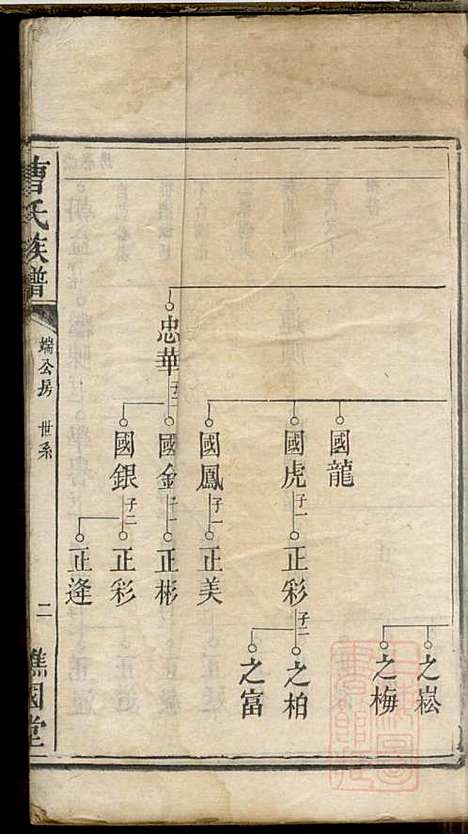 忠華 子二
國龍
國虎 子一
國鳳 子一
國金 子一
國銀 子二
正彩 子二
正美
正彬
正彩
正逢
之崧
之梅
之柏
之富
曹氏族譜
端公房 世系
二
譙國堂